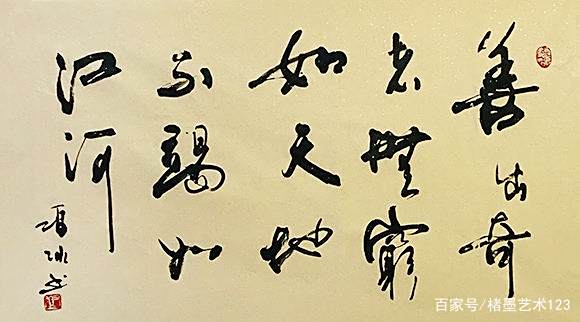 善出奇
者無窮
如天地
不竭如
江河
百家号/楮墨艺术123